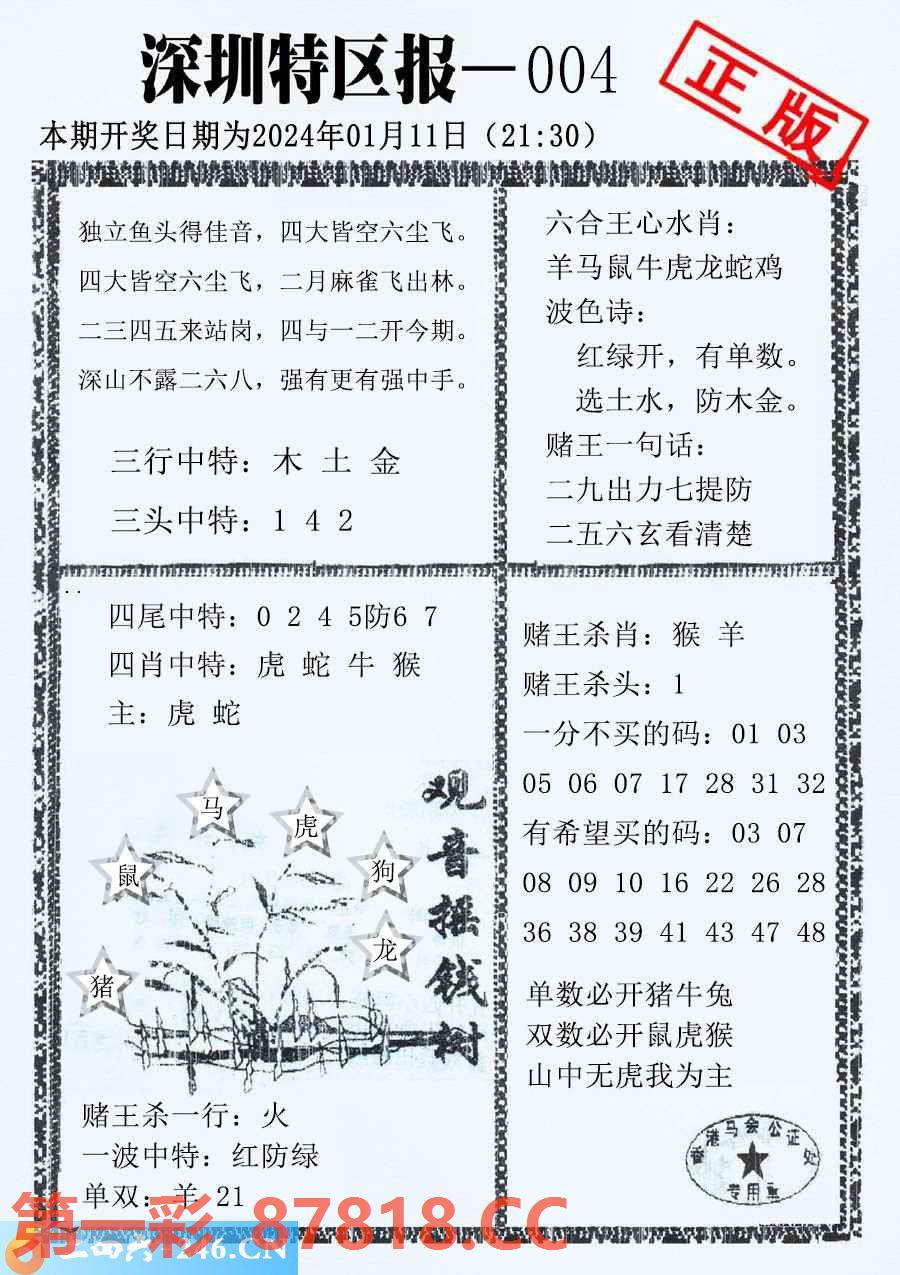 深圳特区报—004
正版
本期开奖日期为2024年01月11日（21:30）
独立鱼头得佳音，四大皆空六尘飞。
四大皆空六尘飞，二月麻雀飞出林。
二三四五来站岗，四与一二开今期。
深山不露二六八，强有更有强中手。
三行中特：木 土 金
三头中特：1 4 2
六合王心水肖：
羊马鼠牛虎龙蛇鸡
波色诗：
红绿开，有单数。
选土水，防木金。
赌王一句话：
二九出力七提防
二五六玄看清楚
四尾中特：0 2 4 5防6 7
四肖中特：虎 蛇 牛 猴
主：虎 蛇
马
虎
鼠
狗
龙
猪
观音摇钱树
赌王杀一行：火
一波中特：红防绿
单双：羊 21
赌王杀肖：猴 羊
赌王杀头：1
一分不买的码：01 03
05 06 07 17 28 31 32
有希望买的码：03 07
08 09 10 16 22 26 28
36 38 39 41 43 47 48
单数必开猪牛兔
双数必开鼠虎猴
山中无虎我为主
香港马会公证处
专用章
第一彩 87818.CC
246.CN